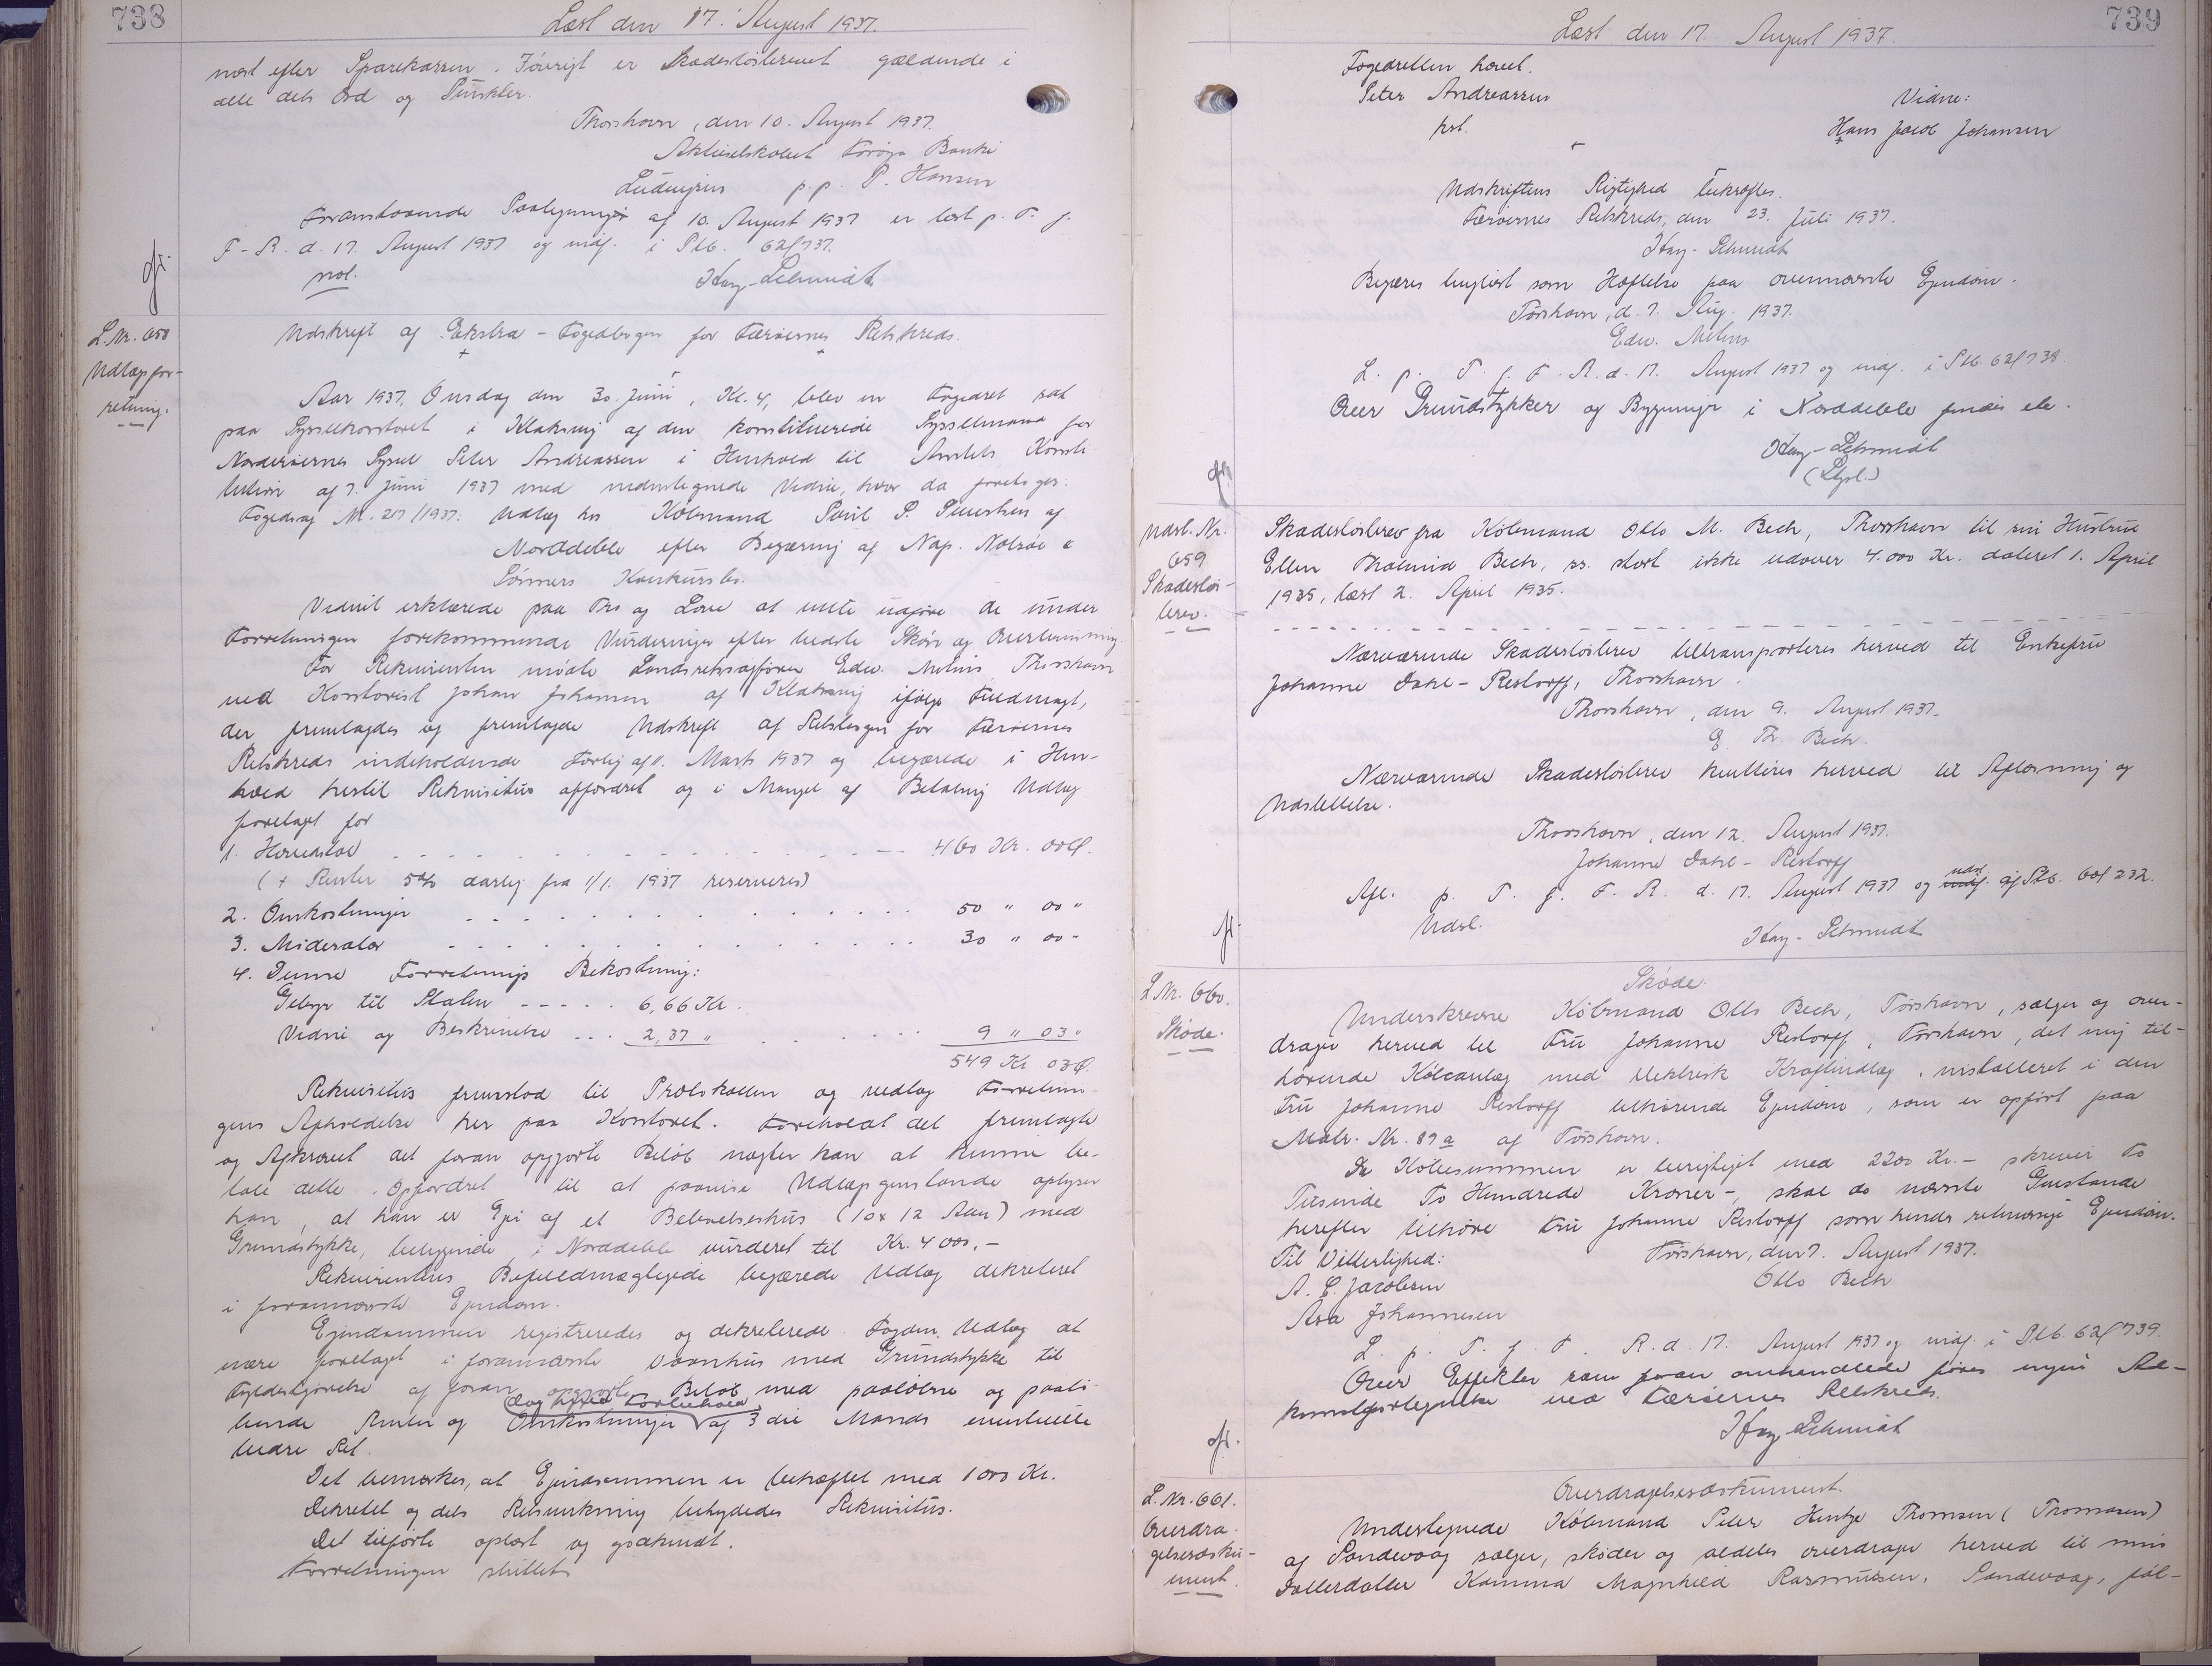 738
Læst den 17. August 1937.
næst efter Sparekassen. Iøvrigt er Skadesløsbrevet gældende i
alle dets Ord og Punkter.
Thorshavn, den 10. August 1937.
Aktieselskabet Føroya Banki
p.p. P. Hansen
Foranstaaende Paategning af 10. August 1937 er læst p. T. f.
F-R. d. 17. August 1937 og indf. i Ptb. 62f737.
Hay-Schmidt
L. Nr. 658
Udlægsfor-
retning.
Udskrift af Ekstra-Fogedbogen for Færøernes Retskreds.
Aar 1937, Onsdag den 30. Juni, Kl. 4, blev en Fogedret sat
paa Sysselkontoret i Klaksvig af den konstituerede Sysselmand for
Norderøernes Syssel Peter Andreassen i Henhold til Amtets Konsti-
tution af 7. Juni 1937 med medundertegnede Vidne, hvor da foretoges:
Fogedsag Nr. 217/1937: Udlæg hos Købmand Poul P. Petersen af
Norddeble efter Begæring af Nap. Nolsøe &
Sønners Konkursbo.
Vidnet erklærede paa Tro og Love at ville udgive de under
Forretningen forekommende Vurderinger efter bedste Skøn og Overbevisning.
For Rekvirenten mødte Landsretssagfører Edw. Mitens Thorshavn
ved Kontorist Johan Johansen af Klaksvig ifølge Fuldmagt,
der fremlagdes og fremlagde Udskrift af Retsbogen for Færøernes
Retskreds indeholdende Forlig af 11. Marts 1937 og begærede i Hen-
hold hertil Rekvisitus opfordret og i Mangel af Betaling Udlæg
foretaget for
1. Hovedstol 460 Kr. 00 Ø.
(+ Renter 5% aarlig fra 1/1. 1937 reserveres)
2. Omkostninger 50 " 00 "
3. Mødesalær 30 " 00 "
4. Denne Forretnings Bekostning:
Gebyr til Staten ----- 6,66 Kr.
Vidne og Beskrivelse ... 2,37 " 9 " 03 "
549 Kr 03 Ø.
Rekvisitus fremstod til Protokollen og vedtog Forretnin-
gens Afholdelse her paa Kontoret. Foreholdt det fremlagte
og Afkrævet det foran opgjorte Beløb nægter han at kunne be-
tale dette. Opfordret til at paavise Udlægsgenstande oplyser
han, at han er Ejer af et Beboelseshus (10 x 12 Alen) med
Grundstykke, beliggende i Norddeble vurderet til Kr. 4000,-
Rekvirentens Befuldmægtigede begærede Udlæg dekreteret
i forannævnte Ejendom.
Ejendommen registreredes og dekreterede Fogden Udlæg at
være foretaget i forannævnte Vaanhus med Grundstykke til
Fyldestgørelse af foran opgjorte Beløb med paaløbne og paalø-
bende Renter og Omkostninger (Dog med Forbehold) af 3die Mands eventuelle
bedre Ret.
Det bemærkes, at Ejendommen er behæftet med 1000 Kr.
Dekretet og dets Retsvirkning betydedes Rekvisitus.
Det tilførte oplæst og godkendt.
Forretningen sluttet
739
Læst den 17. August 1937.
Fogedretten hævet.
Peter Andreassen
kst.
Vidne:
Hans Jacob Johansen
Udskriftens Rigtighed bekræftes.
Færøernes Retskreds, den 23. Juli 1937.
Hay-Schmidt
Begæres tinglæst som Hæftelse paa ovennævnte Ejendom.
Tórshavn, d. 7. Aug. 1937.
Edw. Mitens
L. p. T. f. F. R. d. 17. August 1937 og indf. i Ptb. 62f738.
Over Grundstykker og Bygninger i Norddeble findes etc.
Hay-Schmidt
(Stpl.)
Udsl. Nr.
659
Skadesløs-
brev.
Skadesløsbrev fra Købmand Otto M. Bech, Thorshavn til sin Hustru
Ellen Thalmine Bech, ss. stort ikke udover 4.000 Kr. dateret 1. April
1935, læst 2. April 1935.
Nærværende Skadesløsbrev tiltransporteres herved til Enkefru
Johanne Dahl-Restorff, Thorshavn.
Thorshavn, den 9. August 1937.
E. Th. Bech.
Nærværende Skadesløsbrev kvitteres herved til Aflæsning og
Udslettelse.
Thorshavn, den 12. August 1937.
Johanne Dahl-Restorff
Afl. p. T. f. F. R. d. 17. August 1937 og udsl. af Ptb. 60f232.
Udsl.
Hay-Schmidt
L Nr. 660.
Skøde.
Skøde.
Underskrevne Købmand Otto Bech, Tórshavn, sælger og over-
drager herved til Fru Johanne Restorff, Tórshavn, det mig til-
hørende Køleanlæg med elektrisk Kraftindlæg, installeret i den
Fru Johanne Restorff tilhørende Ejendom, som er opført paa
Matr. Nr. 89a af Tórshavn.
Da Købesummen er berigtiget med 2200 Kr.- skriver To
Tusinde To Hundrede Kroner-, skal de nævnte Genstande
herefter tilhøre Fru Johanne Restorff som hendes retmæssige Ejendom.
Til Vitterlighed:
Tórshavn, den 7. August 1937.
A. C. Jacobsen
Otto Bech
Asa Johannesen
L. p. T. f. F. R. d. 17. August 1937 og indf. i Ptb. 62f739.
Over Effekter som foran omhandlede føres ingen Re-
alregister ved Færøernes Retskreds.
Hay-Schmidt
L. Nr. 661.
Overdra-
gelsesdoku-
ment.
Overdragelsesdokument.
Undertegnede Købmand Peter Hentze Thomsen (Thomasen)
af Sandevaag sælger, skøder og aldeles overdrager herved til min
Datterdatter Kamma Magnhild Rasmussen, Sandevaag, føl-